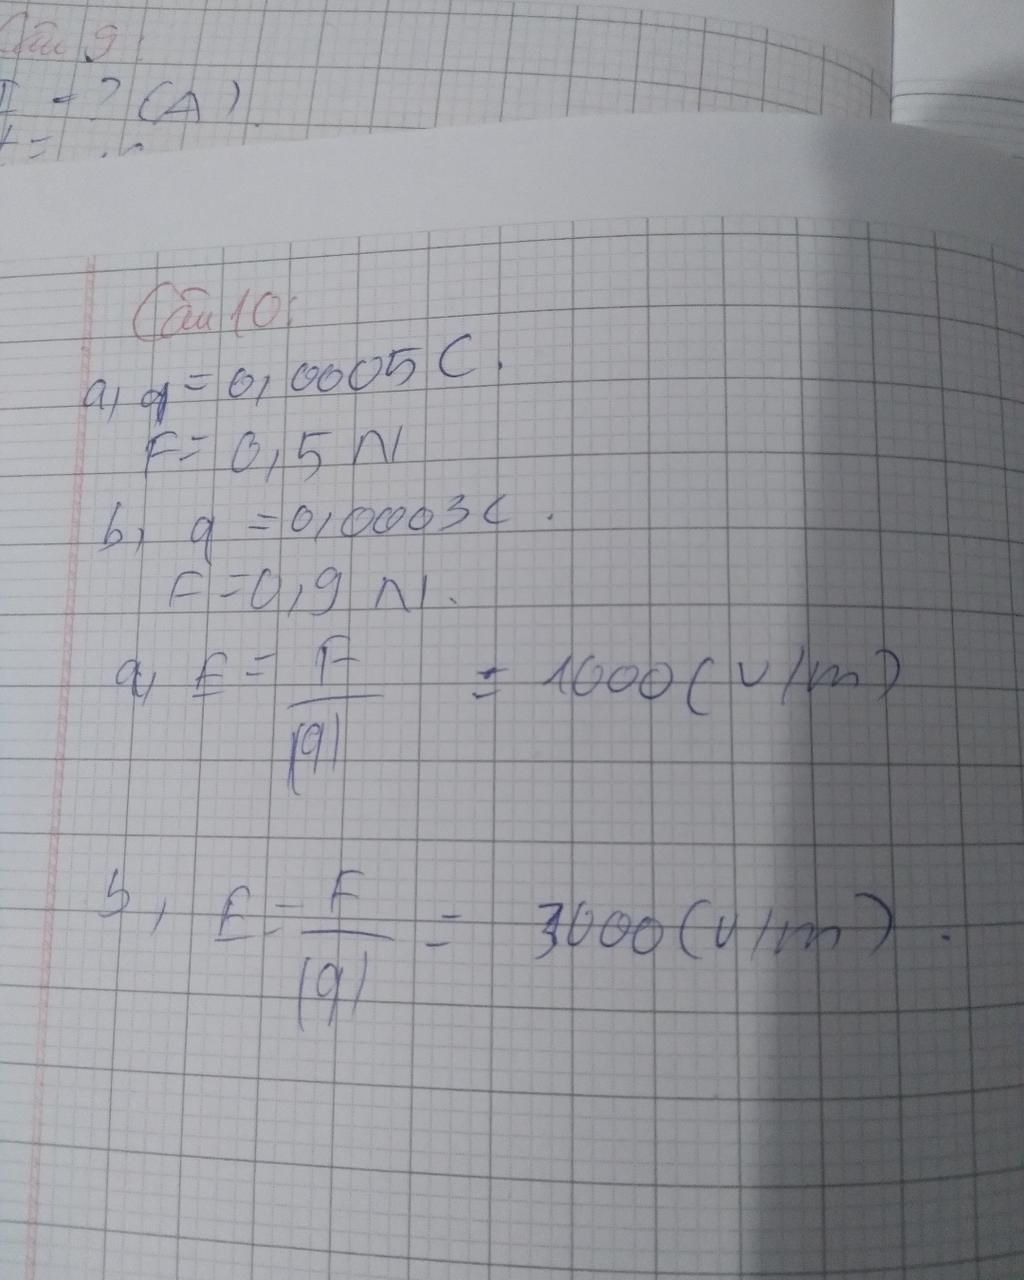 Câu 9:
I = ? (A)
t =
Câu 10:
a, q = 0,0005 C.
F = 0,5 N
b, q = 0,0003 C.
F = 0,9 N.
a, E = F / |q| = 1000 (V/m)
b, E = F / |q| = 3000 (V/m).